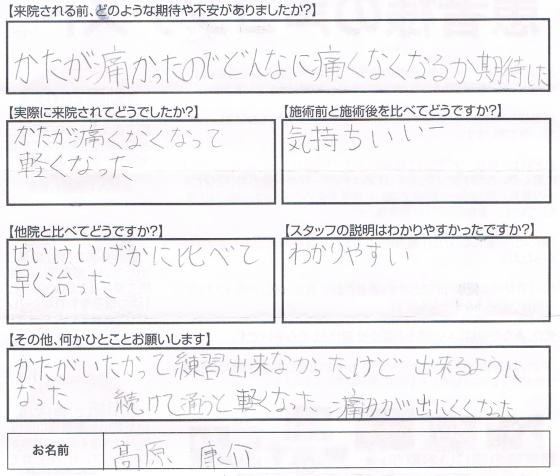 【来院される前、どのような期待や不安がありましたか?】
かたが痛かったのでどんなに痛くなくなるか期待した
【実際に来院されてどうでしたか?】
かたが痛くなくなって
軽くなった
【施術前と施術後を比べてどうですか?】
気持ちいいー
【他院と比べてどうですか?】
せいけいげかに比べて
早く治った
【スタッフの説明はわかりやすかったですか?】
わかりやすい
【その他、何かひとことお願いします】
かたがいたかって練習出来なかったけど 出来るように
なった 続けて通うと軽くなった 痛みが出にくくなった
お名前 高原 康介